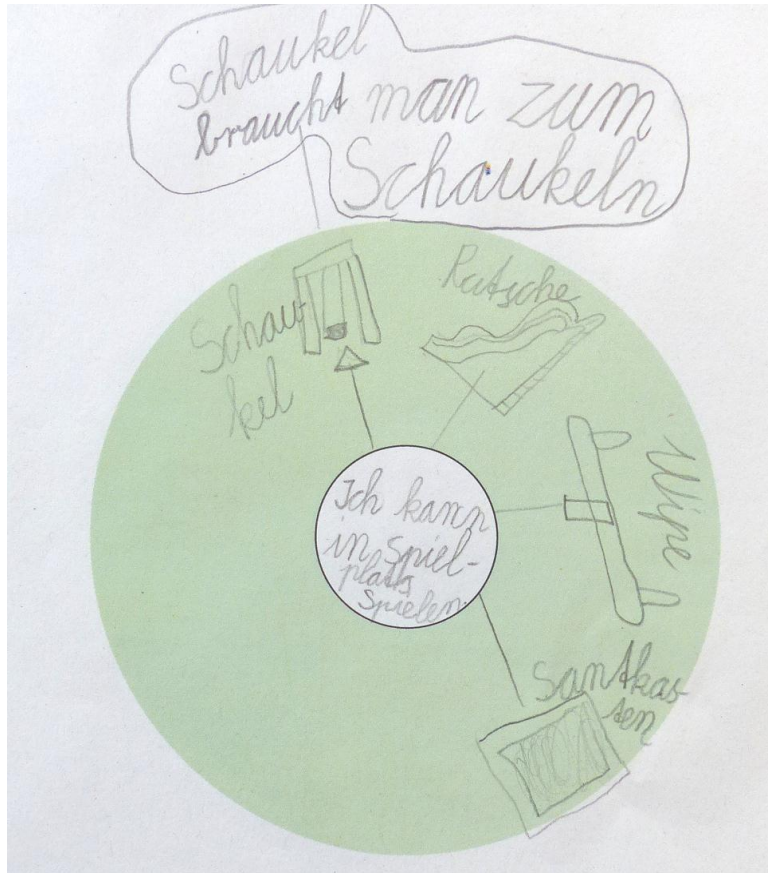 Schaukel
braucht man zum
Schaukeln
Schau
kel
Rutsche
Wipe
Santkas-
ten
Ich kann
in Spiel-
plats
Spielen